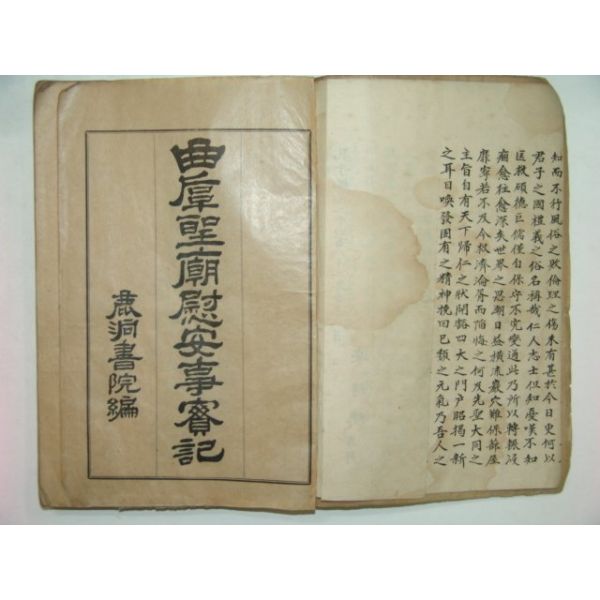 知而不行風俗之敗倫理之傷未有甚於今日更何以
君子之國禮義之俗名稱哉仁人志士但知憂嘆不知
匡救碩德巨儒僅自保守不究變通此乃所以轉輾浸
痼愈往愈深矣世界之思潮日益橫流巖穴難保蔀屋
靡寧若不及今救濟淪胥而陷悔之何及先聖大同之
主旨自有天下歸仁之狀開豁四大之門戶昭揭一新
之耳目喚發固有之精神挽回已頹之元氣乃吾人之
曲阜聖廟慰安事實記
鹿洞書院編